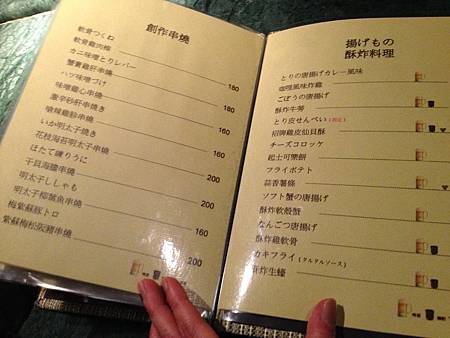 創作串燒
軟骨つくね
軟骨雞肉棒
180
カニ味噌とりレバー
蟹黃雞肝串燒
180
ハツ味噌づけ
味噌雞心串燒
160
激辛砂肝串焼き
嗆辣雞胗串燒
160
いか明太子焼き
花枝海苔明太子串燒
200
ほたて練りうに
干貝海膽串燒
200
明太子ししゃも
明太子柳葉魚串燒
160
梅紫蘇豚トロ
紫蘇梅松阪豬串燒
200
揚げもの
酥炸料理
とりの唐揚げカレー風味
咖哩風味炸雞
ごぼうの唐揚げ
酥炸牛蒡
とり皮せんべい
招牌雞皮仙貝酥
チーズコロッケ
起士可樂餅
フライポテト
蒜香薯條
ソフト蟹の唐揚げ
酥炸軟殼蟹
なんこつ唐揚げ
酥炸雞軟骨
カキフライ(タルタルソース)
酥炸生蠔